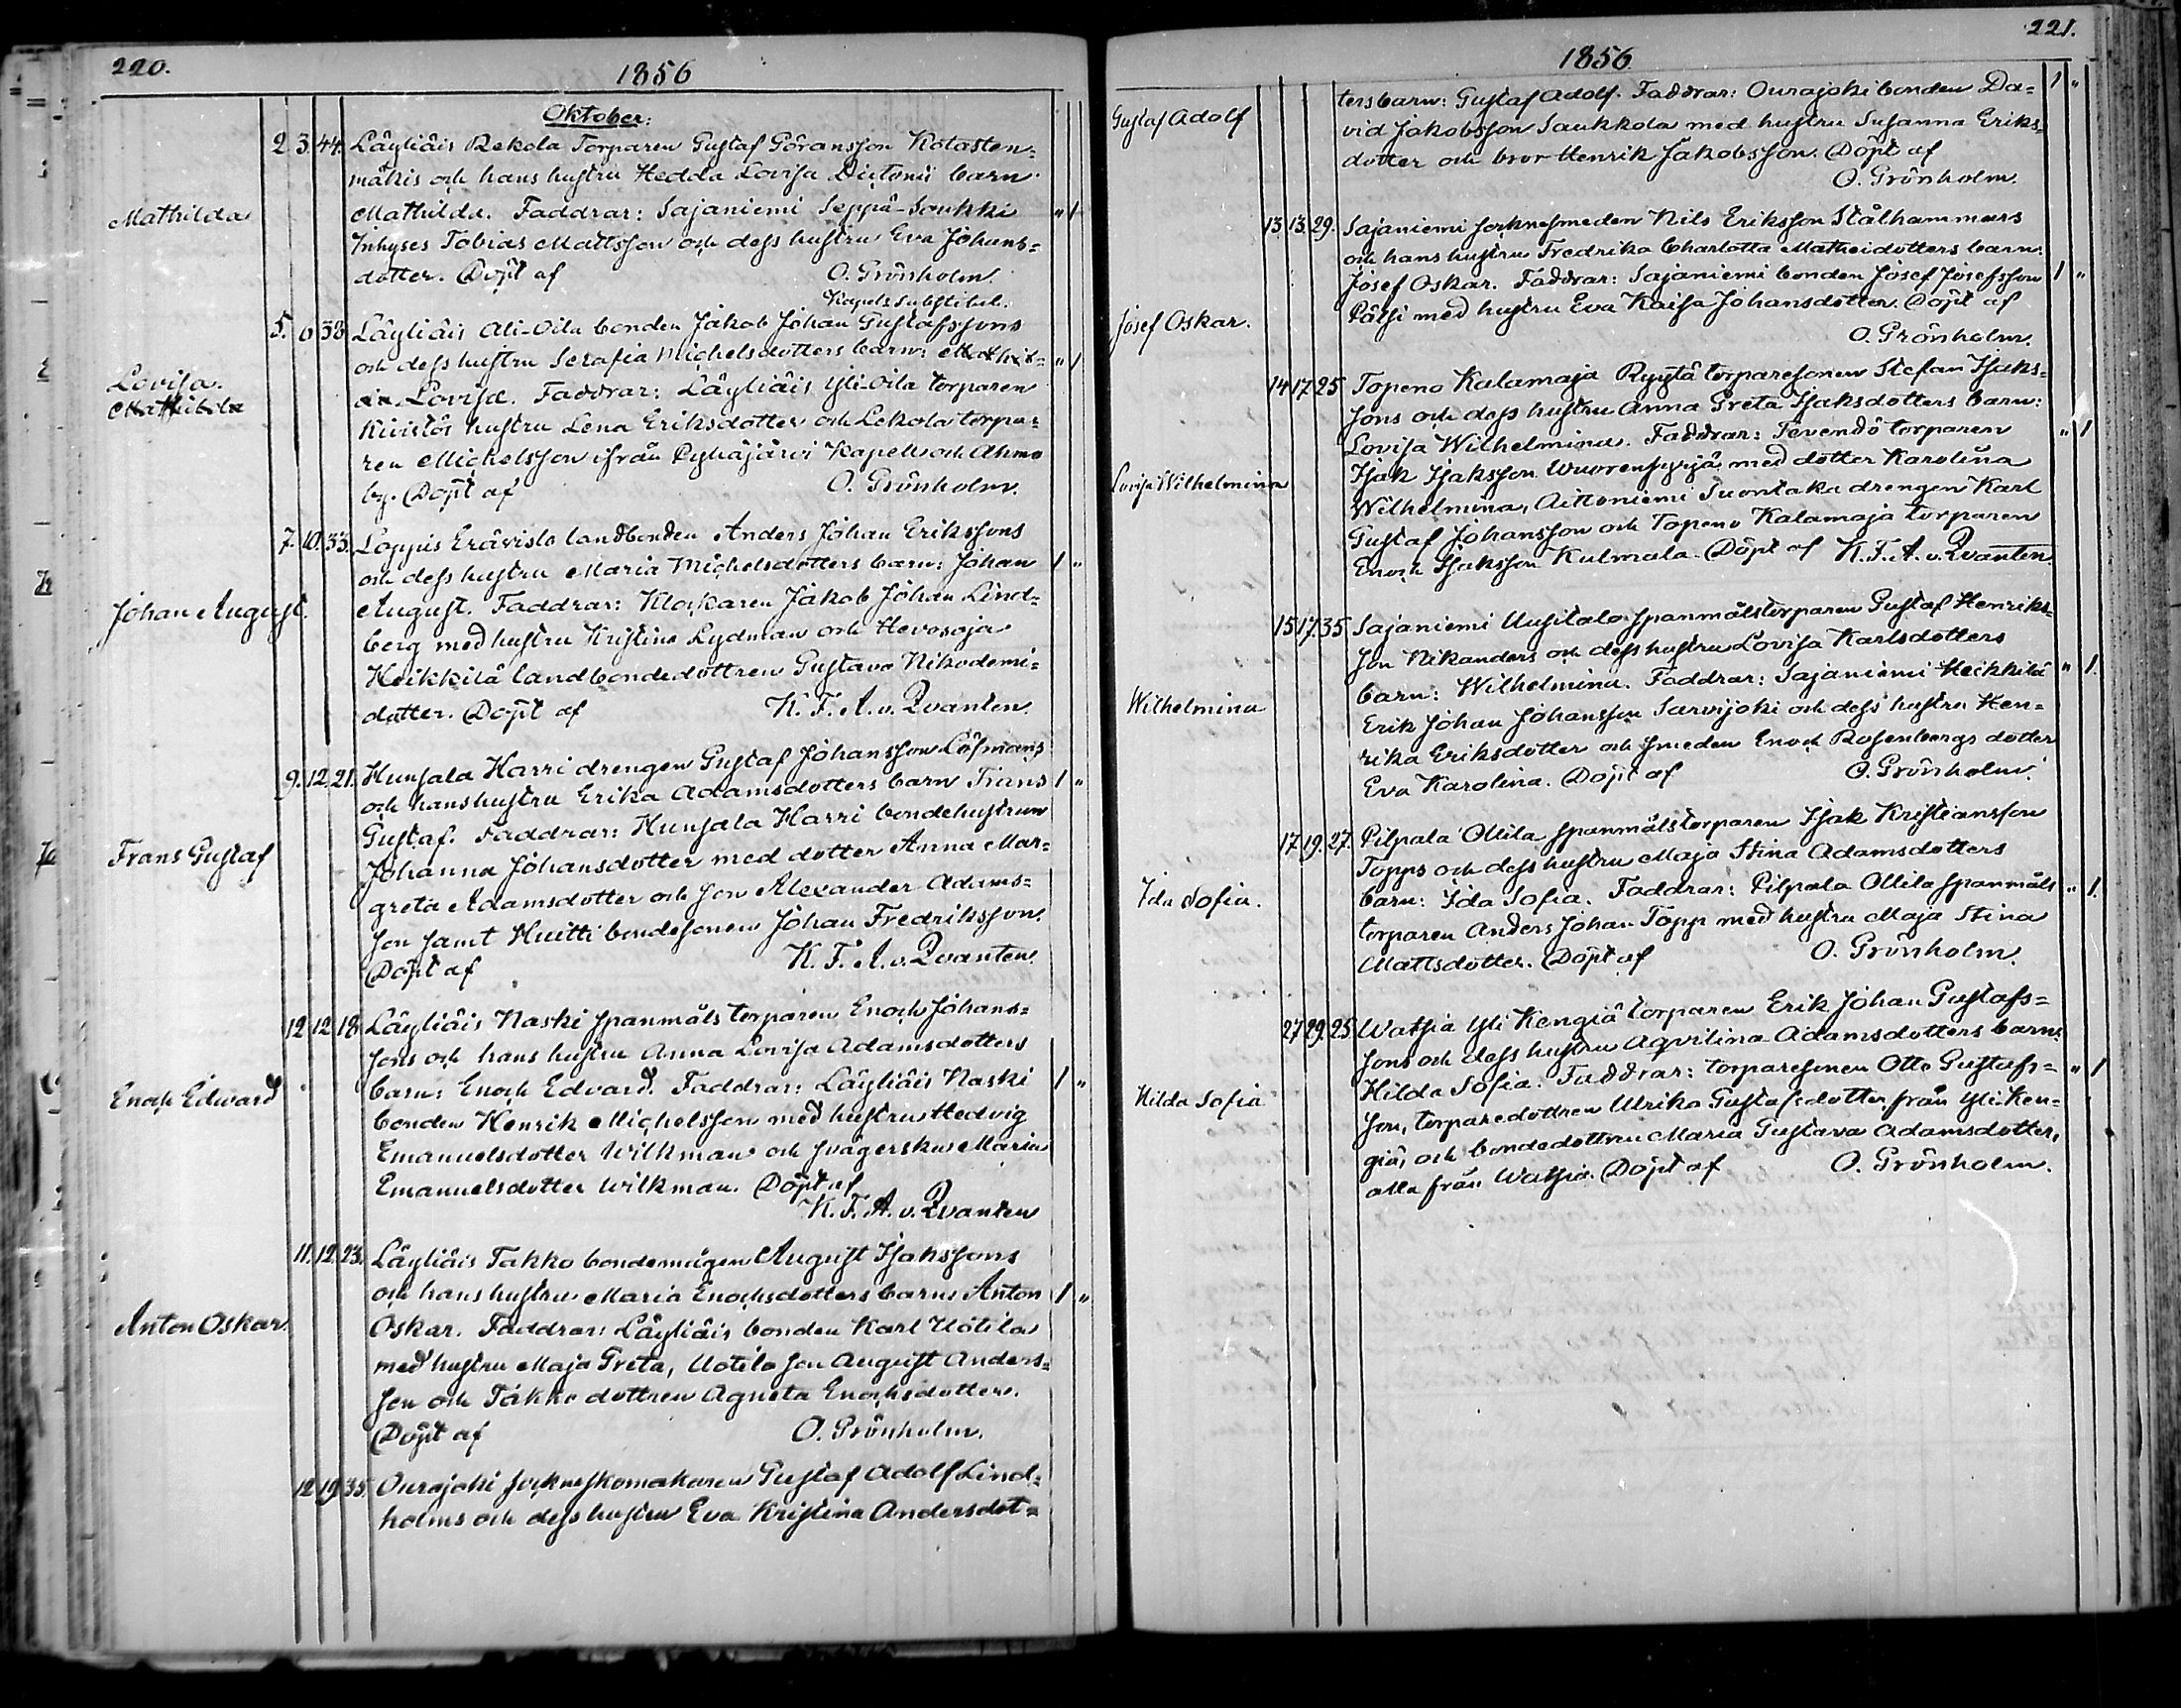 220.
1856
Oktober:
Mathilda
2 3 44. Läyliäis Rekola Torparen Gustaf Göransson Kotasten=
mäkis och hans hustru Hedda Lovisa barn
Mathilda. Faddrar: Sajaniemi Seppä-Soukki " 1
Inhyses Tobias Mattsson och dess hustru Eva Johans=
dotter. Döpt af O. Grönholm.
Kapels substitut.
Lovisa.
Mathilda
5. 6 38 Läyliäis Ali-Oila bonden Jakob Johan Gustafssons
och dess hustru Serafia Michelsdotters barn: Mathil= " 1
da Lovisa. Faddrar: Läyliäis Yli-Oila torparen
Kivistös hustru Lena Eriksdotter och Lekola torpa=
ren Michelsson ifrån Pyhäjärvi Kapell och Ahmo
by. Döpt af O. Grönholm.
Johan August.
7. 10. 33. Loppis Erävisto landbonden Anders Johan Erikssons
och dess hustru Maria Michelsdotters barn: Johan 1 "
August. Faddrar: Klockaren Jakob Johan Lind=
berg med hustru Kristina Lydman och Hevosoja
Heikkilä landbondedottren Gustava Nikodemi=
dotter. Döpt af K. F. A. v. Qvanten.
Frans Gustaf
9. 12. 21. Hunsala Harri drengen Gustaf Johansson Löfmans
och hans hustru Erika Adamsdotters barn Frans 1 "
Gustaf. Faddrar: Hunsala Harri bondehustrun
Johanna Johansdotter med dotter Anna Mar=
greta Adamsdotter och son Alexander Adams=
son samt Huitti bondesonen Johan Fredriksson.
Döpt af K. F. A. v. Qvanten.
Enoch Edward
12 12 18. Läyliäis Naski spanmåls torparen Enoch Johans=
sons och hans hustru Anna Lovisa Adamsdotters
barn: Enoch Edvard. Faddrar: Läyliäis Naski 1 "
bonden Henrik Michelsson med hustru Hedvig
Emanuelsdotter Wilkman och svägerskan Maria
Emanuelsdotter Wilkman. Döpt af
K. F. A. v. Qvanten
Anton Oskar.
11. 12. 23. Läyliäis Takko bondemågen August Isakssons
och hans hustru Maria Enochsdotters barn: Anton 1 "
Oskar. Faddrar: Läyliäis bonden Karl Uotila
med hustru Maja Greta, Uotila son August Anders=
son och Takko dottren Agneta Enochsdotter.
Döpt af O. Grönholm.
12 19 35. Ourajoki socknesKomakaren Gustaf Adolf Lind=
holms och dess hustru Eva Kristina Andersdot=
221.
1856.
Gustaf Adolf
tersbarn: Gustaf Adolf. Faddrar: Ourajoki bonden Da= 1 "
vid Jakobsson Saukkola med hustru Susanna Eriks=
dotter och bror Henrik Jakobsson. Döpt af
O. Grönholm.
Josef Oskar.
13. 13. 29. Sajaniemi socknesmeden Nils Eriksson Stålhammars
och hans hustru Fredrika Charlotta Matheidotters barn:
Josef Oskar. Faddrar: Sajaniemi bonden Josef Josefsson 1 "
Pätsi med hustru Eva Kaisa Johansdotter. Döpt af
O. Grönholm.
Lovisa Wilhelmina
14 17 25 Topeno Kalamaja Ryytä torparesonen Stefan Isaks=
sons och dess hustru Anna Greta Isaksdotters barn:
Lovisa Wilhelmina. Faddrar: Tevendö torparen " 1
Isak Isaksson Wuorensyrjä med dotter Karolina
Wilhelmina, Aittoniemi Suontaka drengen Karl
Gustaf Johansson och Topeno Kalamaja torparen
Enoch Isaksson Kulmala. Döpt af K. F. A. v. Qvanten.
Wilhelmina
15 17. 35 Sajaniemi Uusitalo spanmålstorparen Gustaf Henriks=
son Nikanders och dess hustru Lovisa Karlsdotters
barn: Wilhelmina. Faddrar: Sajaniemi Heikkilä " 1.
Erik Johan Johansson Sarvijoki och dess hustru Hen=
rika Eriksdotter och smeden Enoch Rosenbergs dotter
Eva Karolina. Döpt af O. Grönholm.
Ida Sofia.
17. 19. 27. Pilpala Ollila spanmålstorparen Isak Kristiansson
Topps och dess hustru Maja Stina Adamsdotters
barn: Ida Sofia. Faddrar: Pilpala Ollila spanmåls " 1.
torparen Anders Johan Topp med hustru Maja Stina
Mattsdotter. Döpt af O. Grönholm.
Hilda Sofia
27 29. 25. Watsia Yli Kengiä torparen Erik Johan Gustafs=
sons och dess hustru Aqvilina Adamsdotters barn:
Hilda Sofia. Faddrar: torparesonen Otto Gustafs= " 1
son, torparedottren Ulrika Gustafsdotter från Yli-Ken=
giä, och bondedottren Maria Gustava Adamsdotter,
alla från Watsia. Döpt af O. Grönholm.